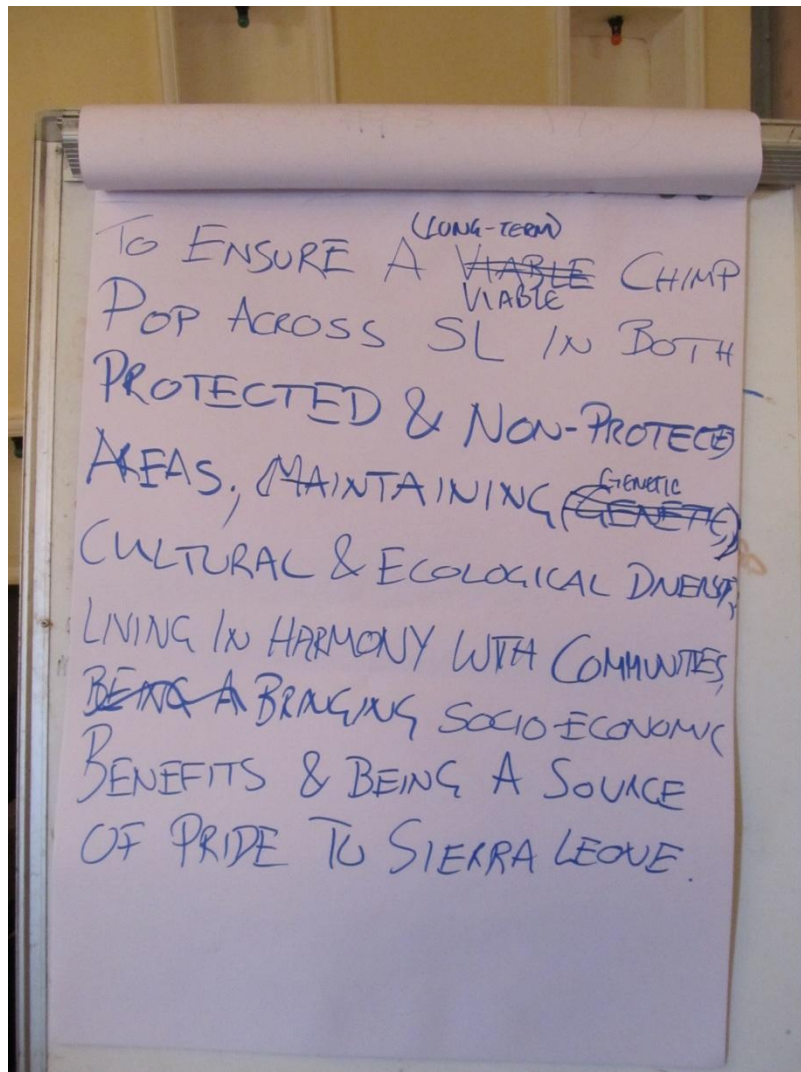 (LONG-TERM)
TO ENSURE A VIABLE CHIMP
VIABLE
POP ACROSS SL IN BOTH
PROTECTED & NON-PROTECTED
AREAS, MAINTAINING (GENETIC,)
GENETIC
CULTURAL & ECOLOGICAL DIVERSITY,
LIVING IN HARMONY WITH COMMUNITIES,
BEING A BRINGING SOCIO-ECONOMIC
BENEFITS & BEING A SOURCE
OF PRIDE TO SIERRA LEONE.